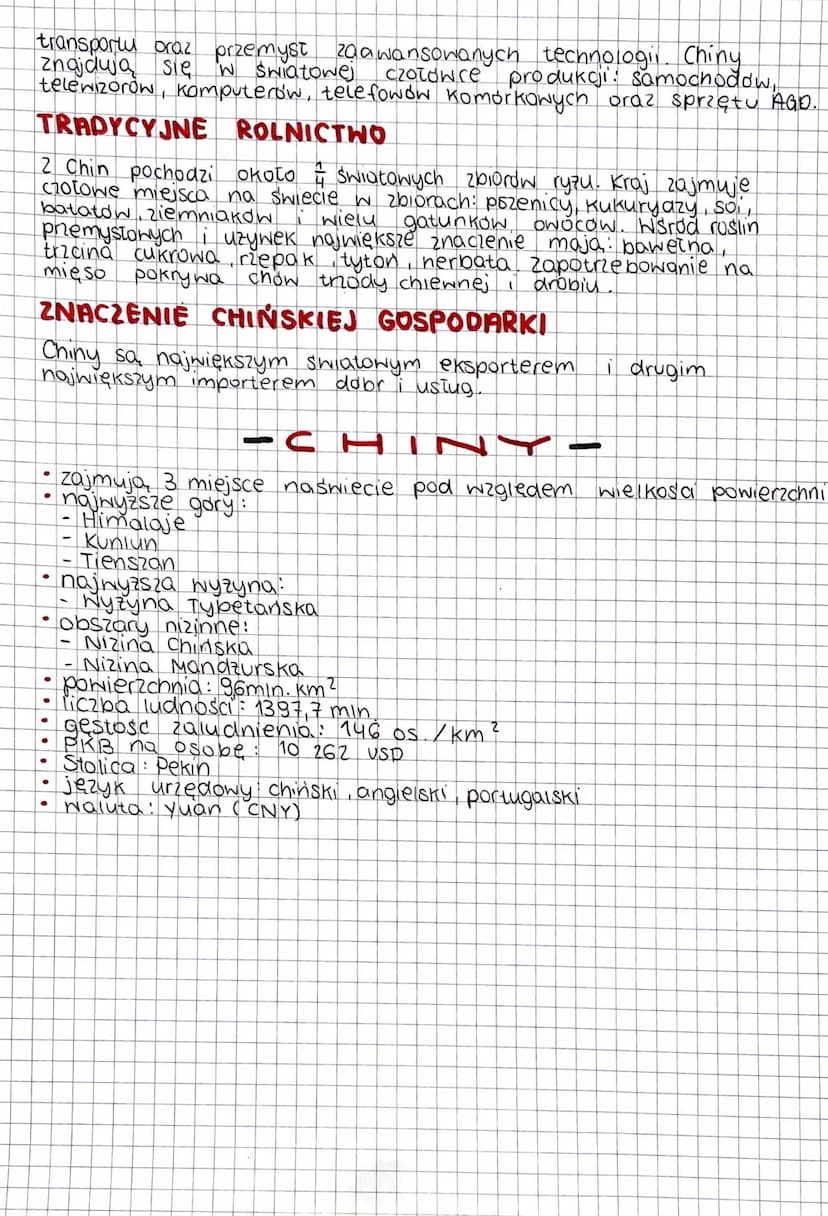 transportu oraz przemysł zaawansowanych technologii. Chiny
znajdują się w światowej czołówce produkcji: samochodów,
telewizorów, komputerów, telefonów komórkowych oraz sprzętu AGD.
TRADYCYJNE ROLNICTWO
Z Chin pochodzi około 1/4 światowych zbiorów ryżu. Kraj zajmuje
czołowe miejsca na świecie w zbiorach: pszenicy, kukurydzy, soi,
batatów, ziemniaków i wielu gatunków owoców. Wśród roślin
przemysłowych i używek największe znaczenie mają: bawełna,
trzcina cukrowa, rzepak, tytoń, herbata. Zapotrzebowanie na
mięso pokrywa chów trzody chlewnej i drobiu.
ZNACZENIE CHIŃSKIEJ GOSPODARKI
Chiny są największym światowym eksporterem i drugim
największym importerem dóbr i usług.
- CHINY -
• zajmują 3 miejsce na świecie pod względem wielkości powierzchni
• najwyższe góry:
- Himalaje
- Kunlun
- Tienszan
• najwyższa wyżyna:
- Wyżyna Tybetańska
• obszary nizinne:
- Nizina Chińska
- Nizina Mandżurska
• powierzchnia: 96mln. km²
• liczba ludności: 1397,7 mln
• gęstość zaludnienia: 146 os./km²
• PKB na osobę: 10 262 USD
• Stolica: Pekin
• język urzędowy: chiński, angielski, portugalski
• waluta: yuan (CNY)